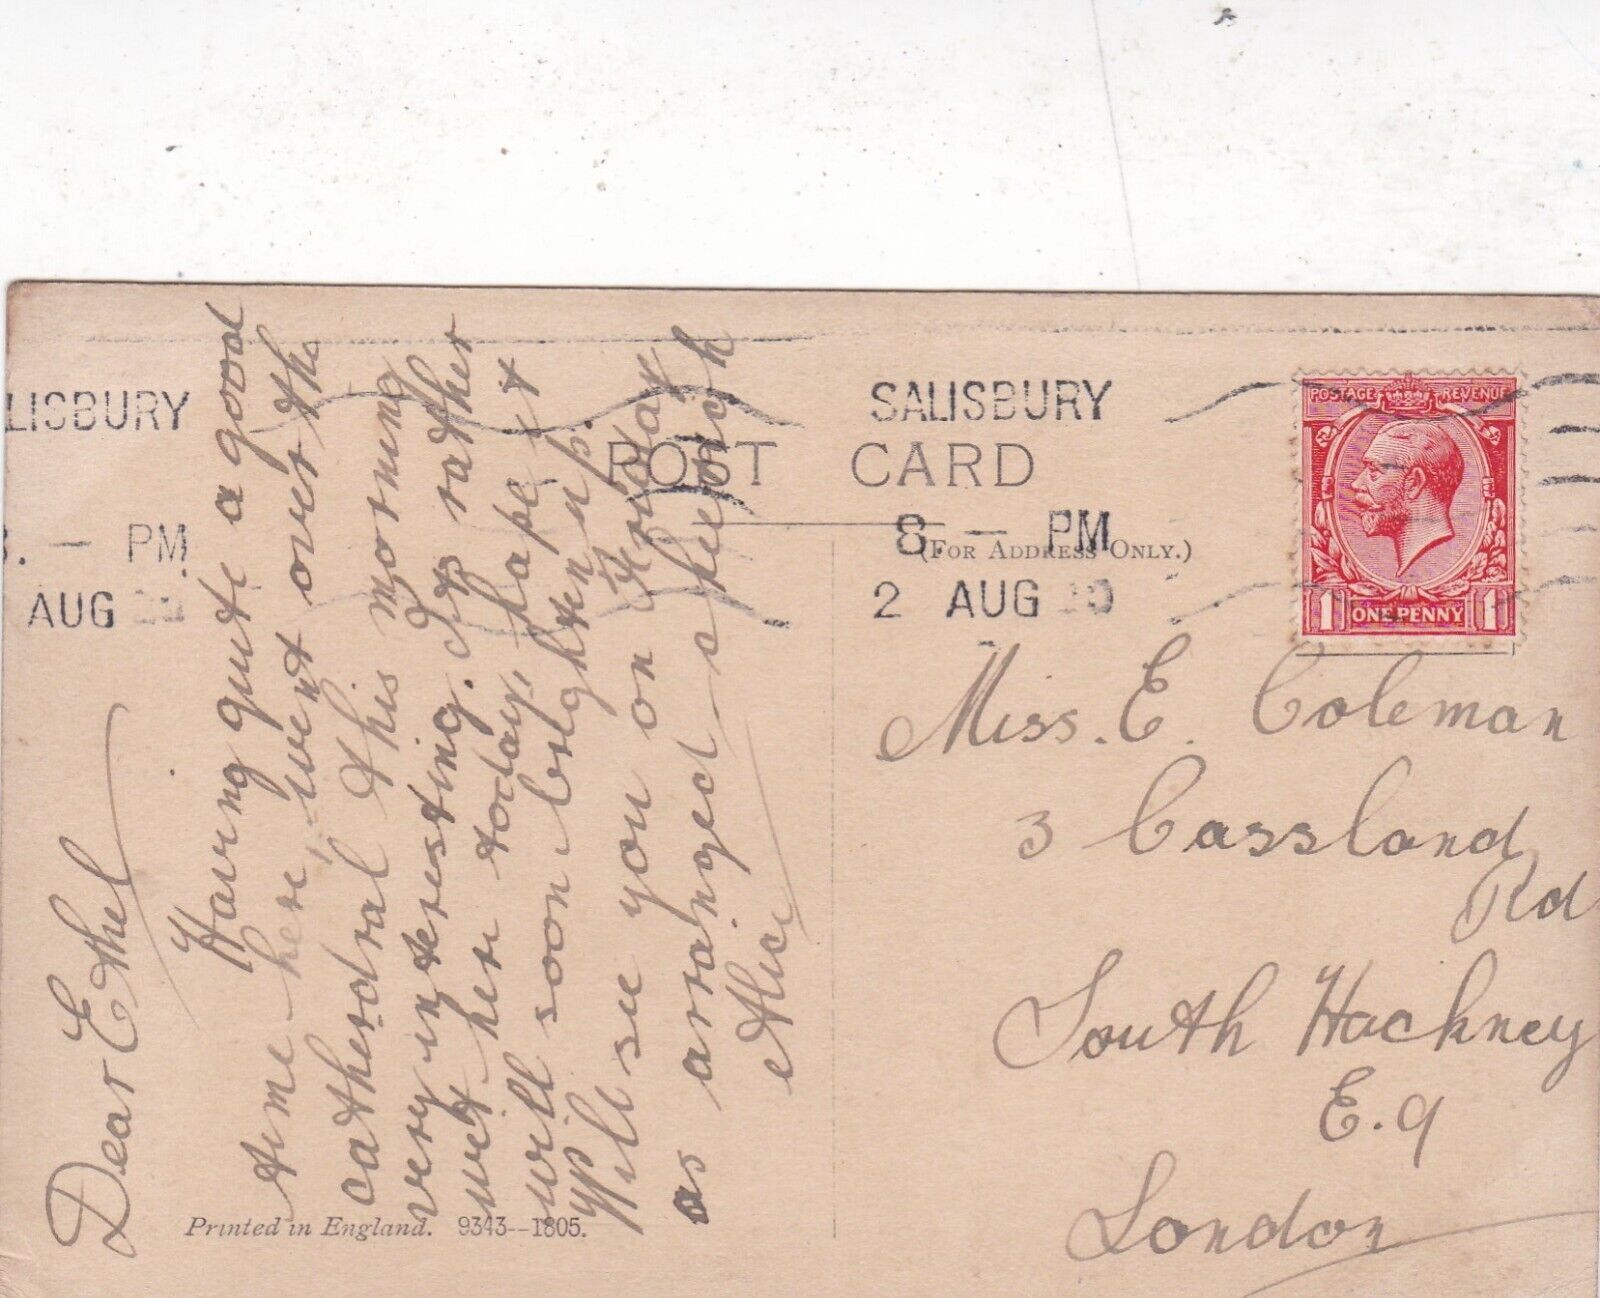 Dear Ethel
Having quite a good
time here, went over the
cathedral this morning
very interesting. Its rather
wet here today, hope it
will soon brighten up.
Will see you on Friday
as arranged
Alice
SALISBURY
LISBURY
POST CARD
8. — PM
. — PM
(FOR ADDRESS ONLY.)
2 AUG
AUG
POSTAGE REVENUE
1 ONE PENNY 1
Miss. E. Coleman
3 Cassland
Rd
South Hackney
E. 9
London
Printed in England. 9343--1805.